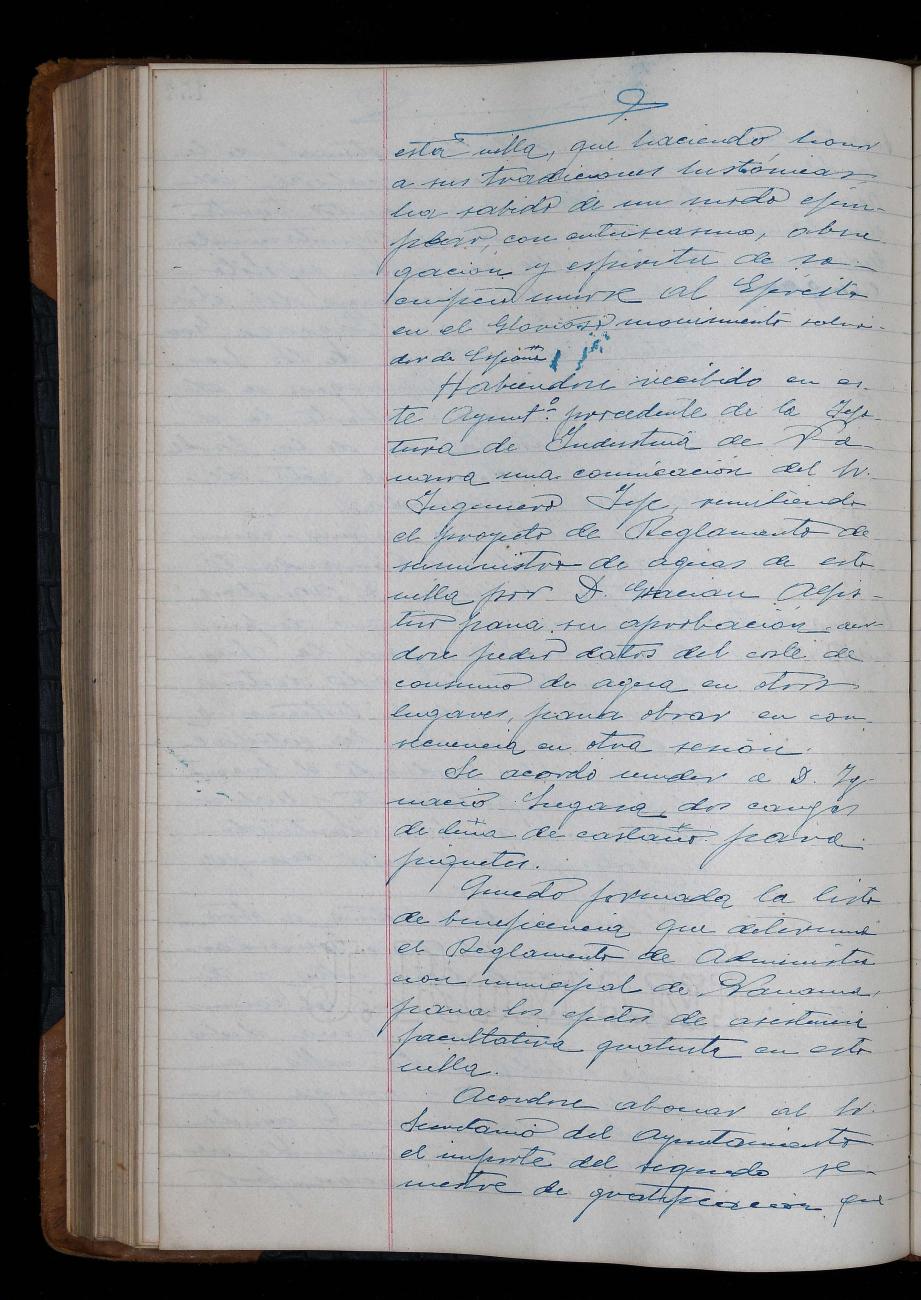 esta villa, que haciendo honor
a sus tradiciones históricas
ha sabido de un modo ejem-
plar, con entusiasmo, abne
gación y espíritu de sa-
crificio unirse al Ejército
en el Glorioso movimiento salva-
dor de España
Habiendose recibido en es-
te Ayuntº procedente de la Jefa
tura de Industria de Na
varra una comunicación del Sr.
Ingeniero Jefe, remitiendo
el proyecto de Reglamento de
suministro de aguas de esta
villa por D. Gracian Alpis-
tur para su aprobación, acor
dose pedir datos del coste de
consumo de agua en otros
lugares, para obrar en con-
secuencia en otra sesión.
Se acordó vender a D. Ig-
nacio dos cargas
de leña de castaño para
piquetes.
Quedó formada la lista
de beneficencia que determina
el Reglamento de Administra
ción municipal de Navarra,
para los efectos de asistencia
facultativa gratuita en esta
villa.
Acordose abonar al Sr.
Secretario del Ayuntamiento
el importe del segundo se-
mestre de gratificación que